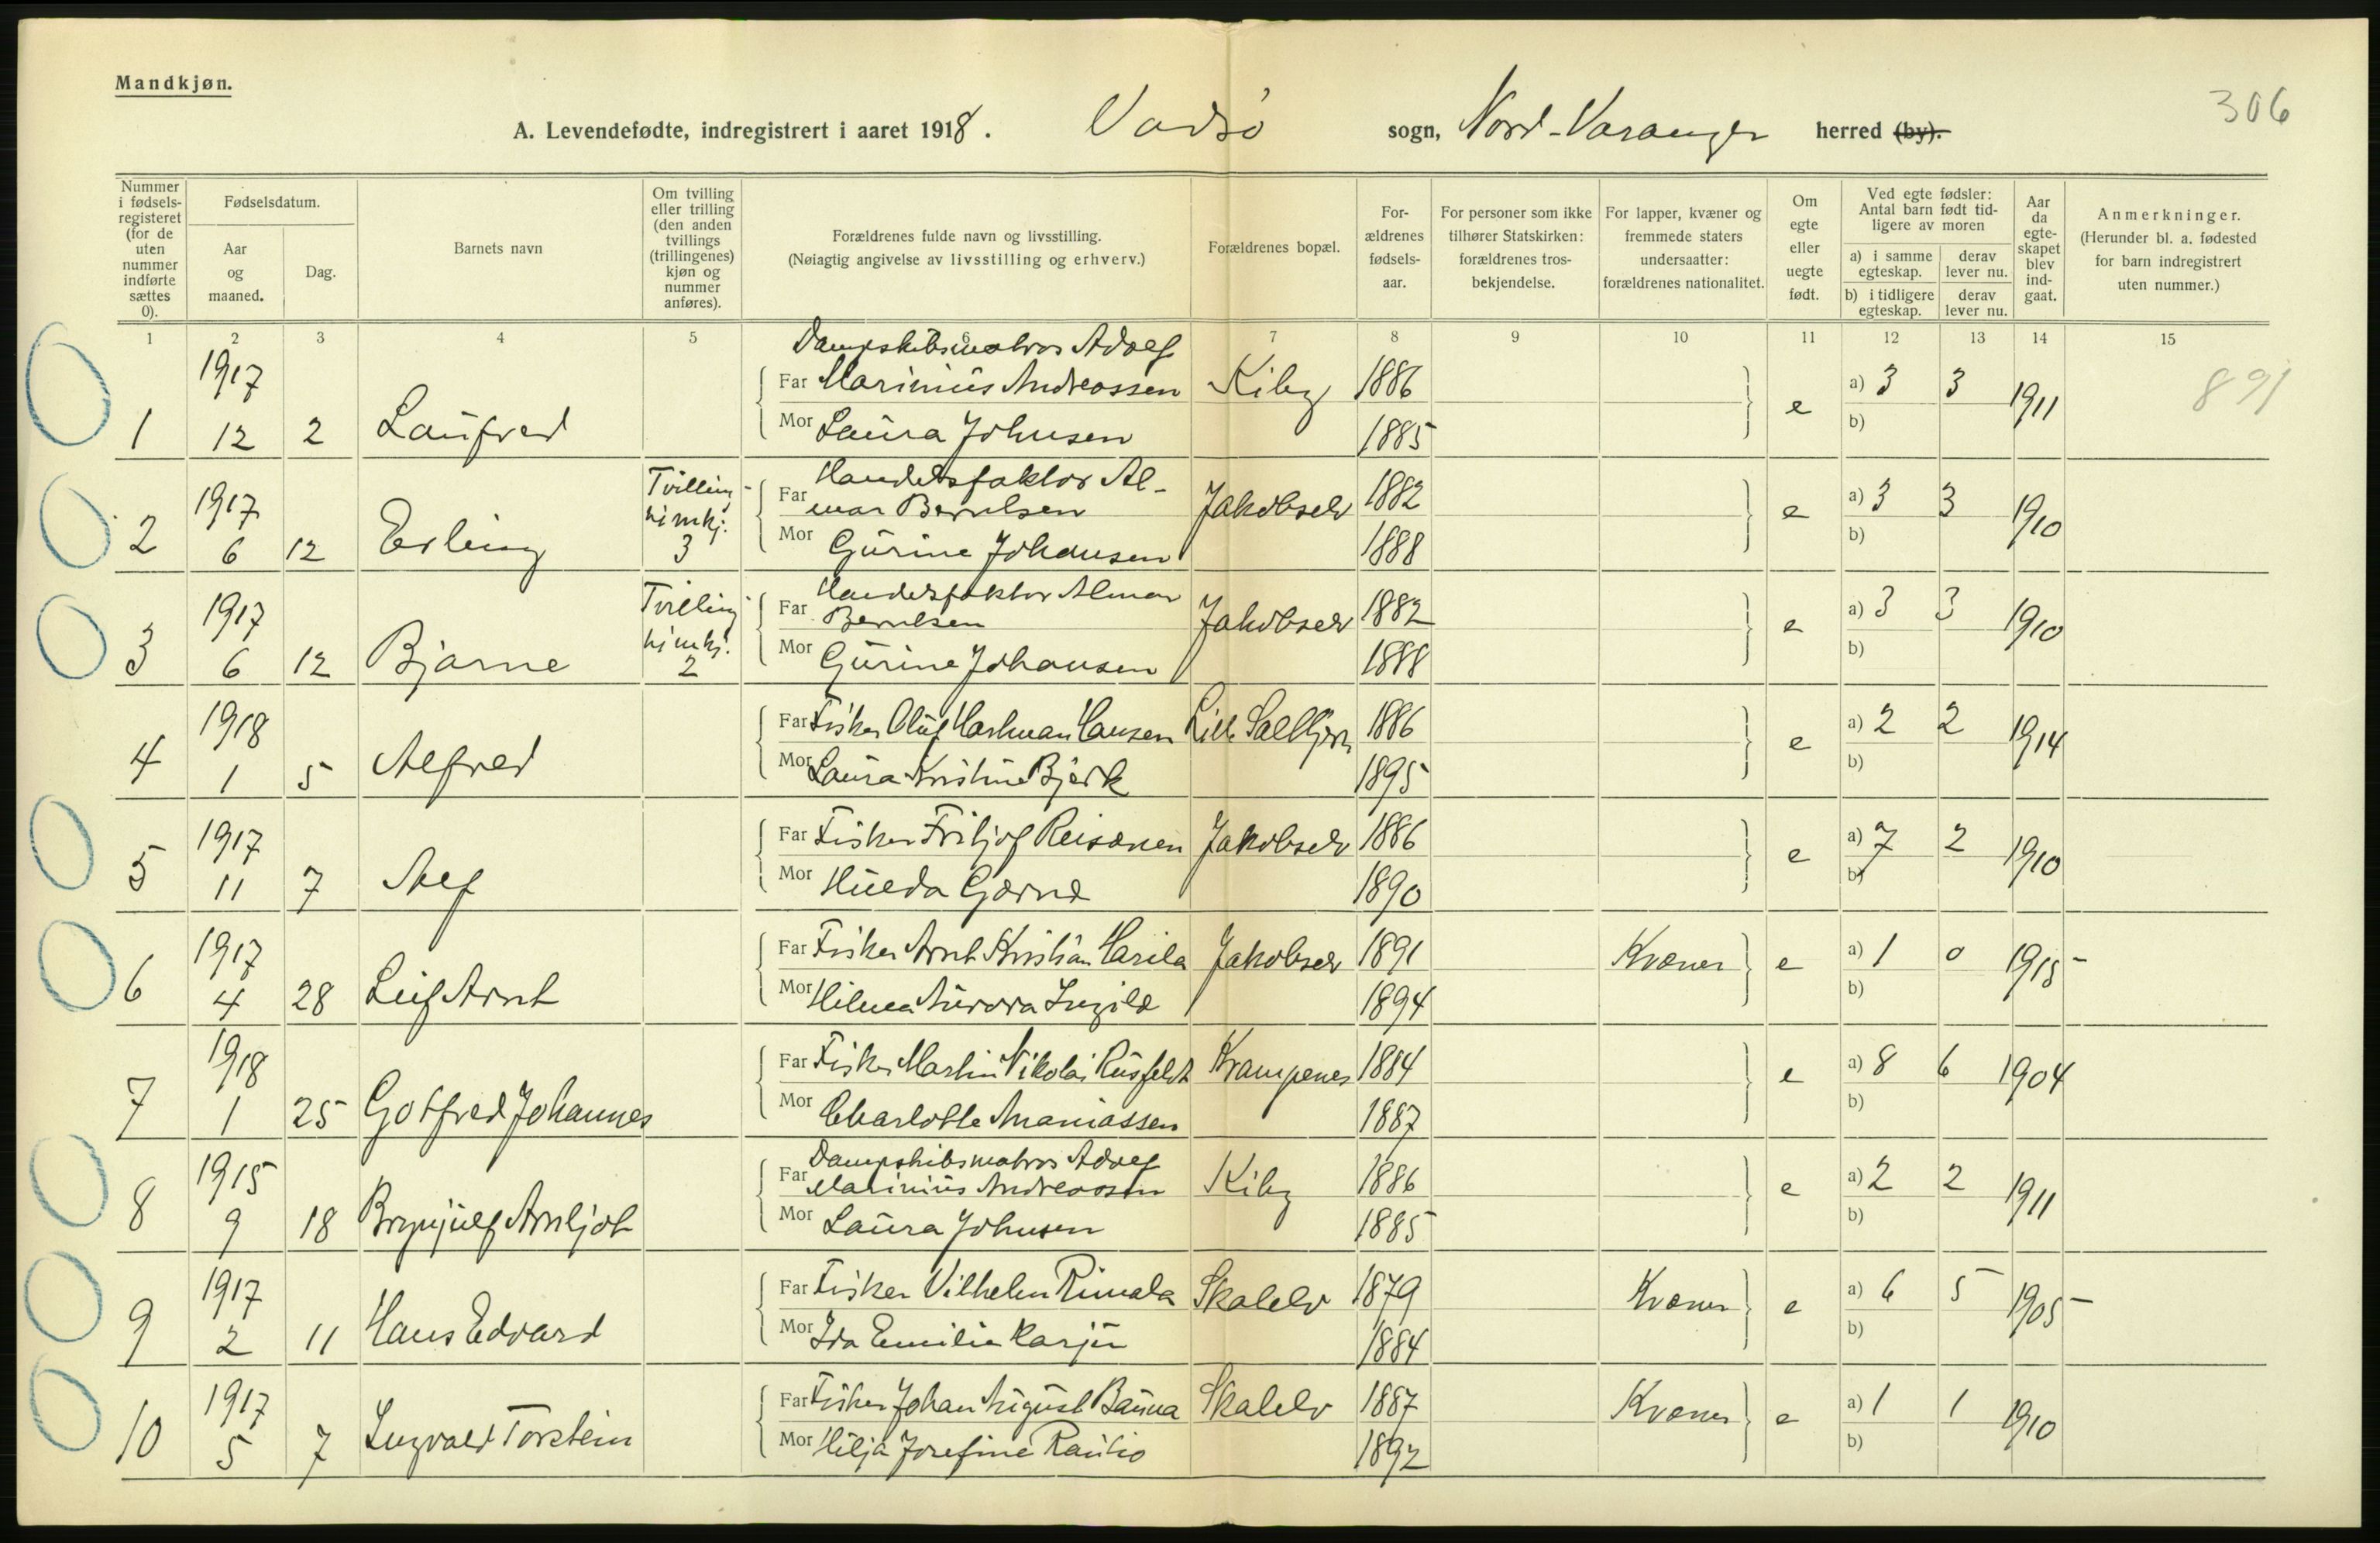 Mandkjøn.
306
A. Levendefødte, indregistrert i aaret 1918. Vadsø sogn, Nord-Varanger herred (by).
Nummer i fødsels-registeret (for de uten nummer indførte sættes 0).
Fødselsdatum.
Aar og maaned.
Dag.
Barnets navn
Om tvilling eller trilling (den anden tvillings (trillingenes) kjøn og nummer anføres).
Forældrenes fulde navn og livsstilling.
(Nøiagtig angivelse av livsstilling og erhverv.)
Forældrenes bopæl.
For-ældrenes fødsels-aar.
For personer som ikke tilhører Statskirken: forældrenes tros-bekjendelse.
For lapper, kvæner og fremmede staters undersaatter: forældrenes nationalitet.
Om egte eller uegte født.
Ved egte fødsler: Antal barn født tid-ligere av moren
a) i samme egteskap. derav lever nu.
b) i tidligere egteskap. derav lever nu.
Aar da egte-skapet blev ind-gaat.
Anmerkninger.
(Herunder bl. a. fødested for barn indregistrert uten nummer.)
1 2 3 4 5 6 7 8 9 10 11 12 13 14 15
Dampskibsmatros Adolf
1917 Far Marinius Andreassen Kiby 1886 a) 3 3 891
1 12 2 Laufred Mor Laura Johnsen 1885 e b) 1911
Tvilling Handelsfaktor Al-
1917 kimkj. Far mar Berntsen Jakobselv 1882 a) 3 3
2 6 12 Erling 3 Mor Gurine Johansen 1888 e b) 1910
Tvilling Handelsfaktor Almar
1917 kimkj. Far Berntsen Jakobselv 1882 a) 3 3
3 6 12 Bjarne 2 Mor Gurine Johansen 1888 e b) 1910
1918 Far Fisker Oluf Hartman Hansen Lille Salttjern 1886 a) 2 2
4 1 5 Alfred Mor Laura Kristine Bjørk 1895 e b) 1914
1917 Far Fisker Fritjof Reisænen Jakobselv 1886 a) 7 2
5 11 7 Alf Mor Hulda Gærnæ 1890 e b) 1910
1917 Far Fisker Arnt Kristian Harila Jakobselv 1891 Kvæner a) 1 0
6 4 28 Leif Arnt Mor Hilma Aurora Ingilæ 1894 e b) 1915
1918 Far Fisker Martin Nikolai Rusfeldt Krampenes 1884 a) 8 6
7 1 25 Gotfred Johannes Mor Charlotte Ananiassen 1887 e b) 1904
Dampskibsmatros Adolf
1915 Far Marinius Andreassen Kiby 1886 a) 2 2
8 9 18 Brynjulf Arnljot Mor Laura Johnsen 1885 e b) 1911
1917 Far Fisker Vilhelm Rimala Skalelv 1879 Kvæner a) 6 5
9 2 11 Hans Edvard Mor Ida Emilie Karjin 1884 e b) 1905
1917 Far Fisker Johan August Bauna Skalelv 1887 Kvæner a) 1 1
10 5 7 Ingvald Torstein Mor Hilja Josefine Rautio 1892 e b) 1910